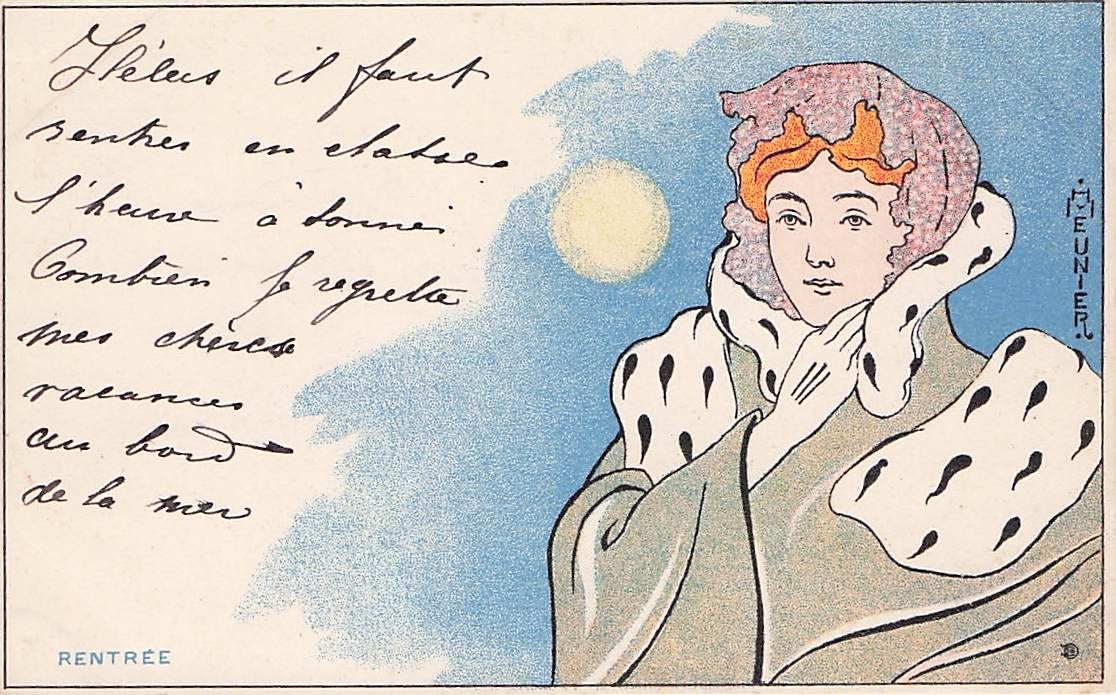 Hélas il faut
rentrer en classe
l'heure à sonné
Combien je regrette
mes chères
vacances
au bord
de la mer
RENTRÉE
MEUNIER